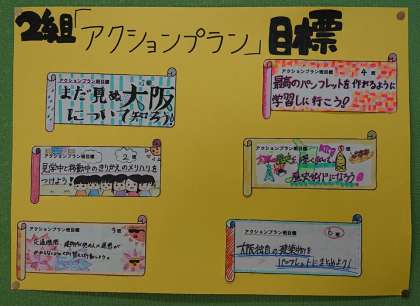 2組「アクションプラン」目標
アクションプラン班目標
まだ見ぬ大阪
について知ろう!
アクションプラン班目標 2班
見学中と移動中のきりかえのメリハリを
つけよう!
アクションプラン班目標 3班
交通機関、
アクションプラン班目標 4班
最高のパンフレットを作れるように
学習しに行こう!
アクションプラン班目標
歴史ガイドになろう!
アクションプラン班目標 6班
大阪独自の建築物を
パンフレットにまとめよう!